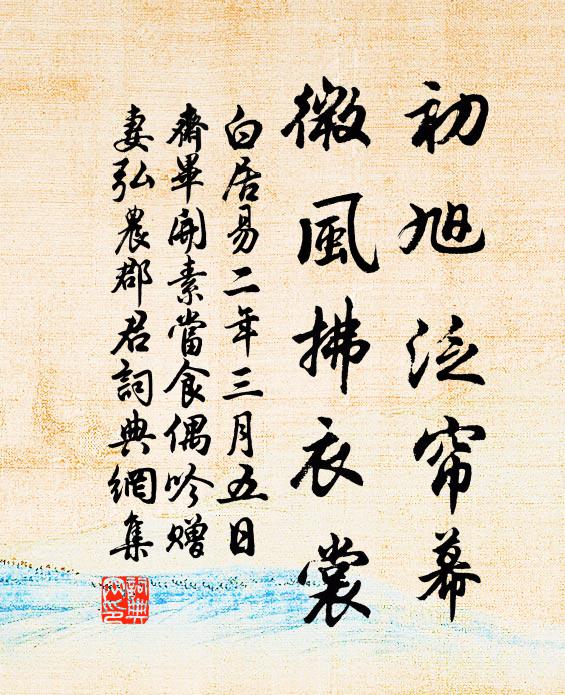 初旭泛帘幕
微風拂衣裳
白居易二年三月五日
齋畢開素當食偶吟贈
妻弘農郡君詞典網集